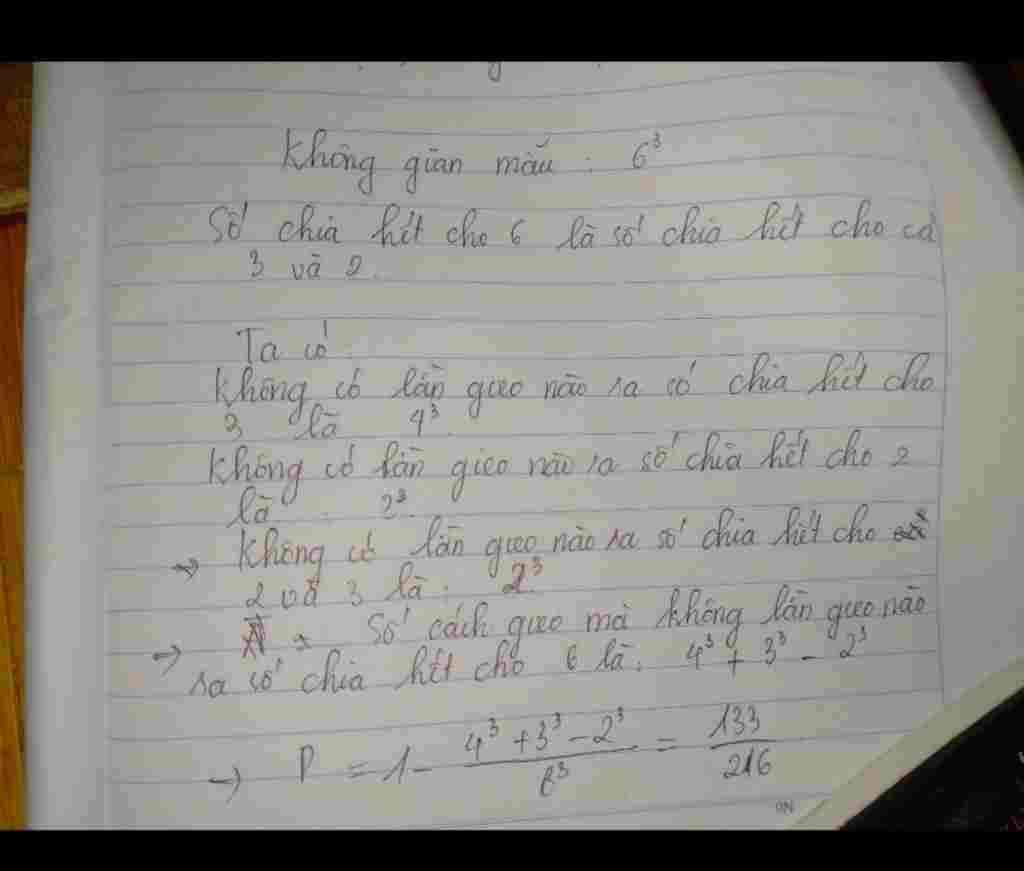 Không gian mẫu : 6³
Số chia hết cho 6 là số chia hết cho cả
3 và 2.
Ta có
Không có lần gieo nào ra số chia hết cho
3 là 4³.
Không có lần gieo nào ra số chia hết cho 2
là : 2³
→ Không có lần gieo nào ra số chia hết cho
2 và 3 là : 2³
→ Số cách gieo mà không lần gieo nào
ra số chia hết cho 6 là: 4³ + 3³ - 2³
→ P = 1 - (4³ + 3³ - 2³)/6³ = 133/216